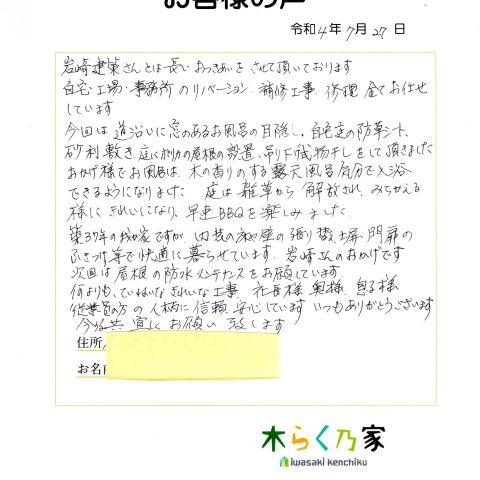 お客様の声
令和4年7月27日
岩崎建築さんとは長いおつきあいをさせて頂いております
自宅・工場・事務所のリノベーション、補修工事、修理全てお任せ
しています
今回は道沿いに窓のあるお風呂の目隠し、自宅庭の防草シート、
砂利敷き、庭にポリカの屋根の設置、吊り下げ物干しをして頂きました
おかげ様でお風呂は、木の香りのする露天風呂気分で入浴
できるようになりました 庭は雑草から解放され、みちがえる
様にきれいになり、早速BBQを楽しみました
築37年の我が家ですが、内装の床や壁の張り替え、塀、門扉の
ふきつけ等で快適に暮らせています。岩崎さんのおかげです
次回は屋根の防水メンテナンスをお願いしています
何よりも、ていねいなきれいな工事、社長様、奥様、息子様
従業員の方の人柄に信頼、安心しています いつもありがとうございます
今後共宜しくお願い致します
住所
お名前
木らく乃家
iwasaki kenchiku